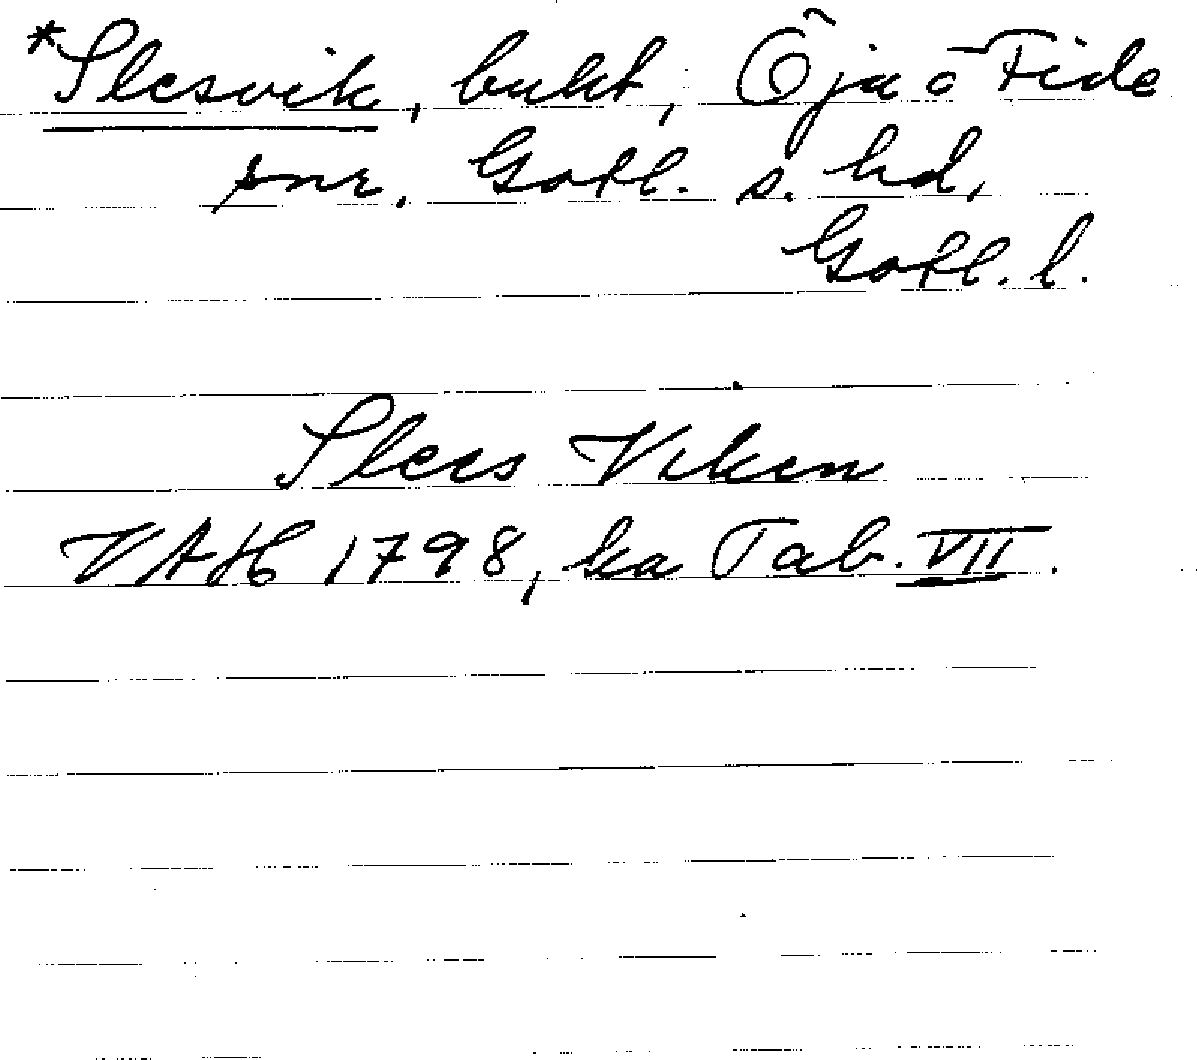 *Slesvik, bukt, Öja o Fide
snr, Gotl. s. hd,
Gotl. l.
Slees Viken
VAH 1798, ka Tab. VII.